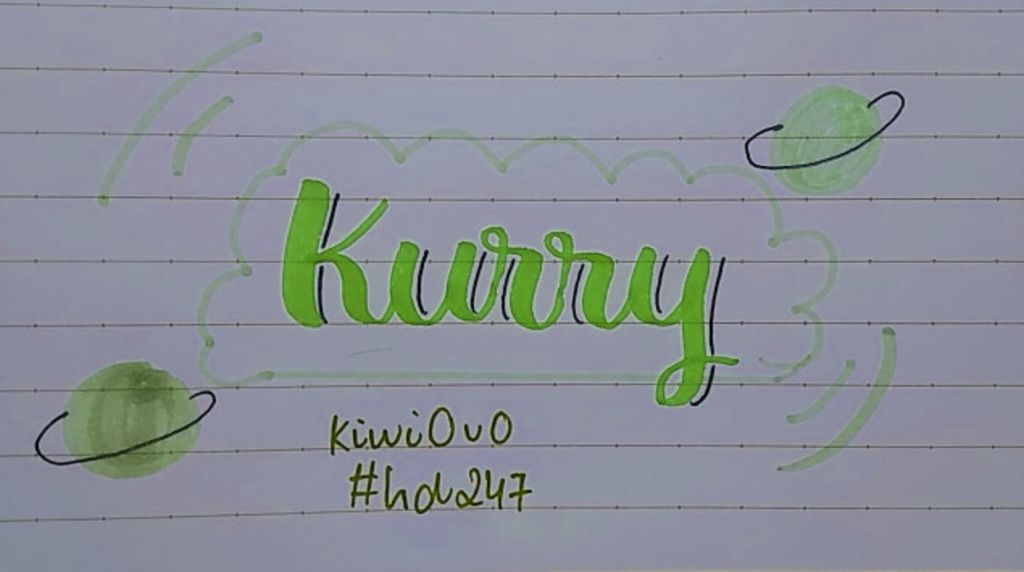 Kurry
kiwiOvO
#hdv247